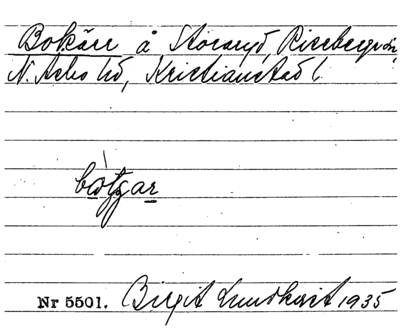 Bokärr å Stoaryd, Riseberga sn,
N. Åsbo hd, Kristianstad l.
bo̱tgar
Nr 5501. Birgit Lundkvist 1935